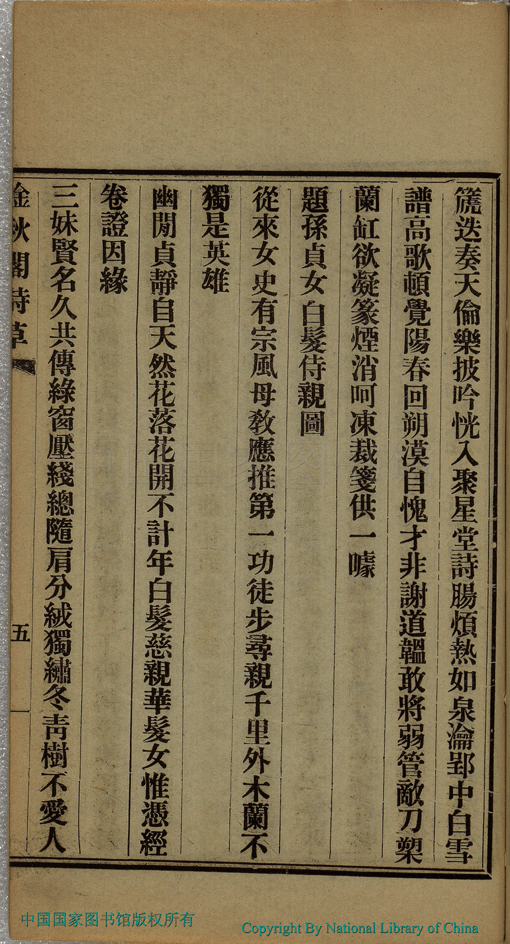 篪迭奏天倫樂披吟恍入聚星堂詩腸煩熱如泉瀹郢中白雪
譜高歌頓覺陽春回朔漠自愧才非謝道韞敢將弱管敵刀槊
蘭缸欲凝篆煙消呵凍裁箋供一噱
題孫貞女白髮侍親圖
從來女史有宗風母教應推第一功徒步尋親千里外木蘭不
獨是英雄
幽閒貞靜自天然花落花開不計年白髮慈親華髮女惟憑經
卷證因緣
三妹賢名久共傳綠窗壓綫總隨肩分絨獨繡冬靑樹不愛人
秋閣詩草
五
中国国家图书馆版权所有
Copyright By National Library of China